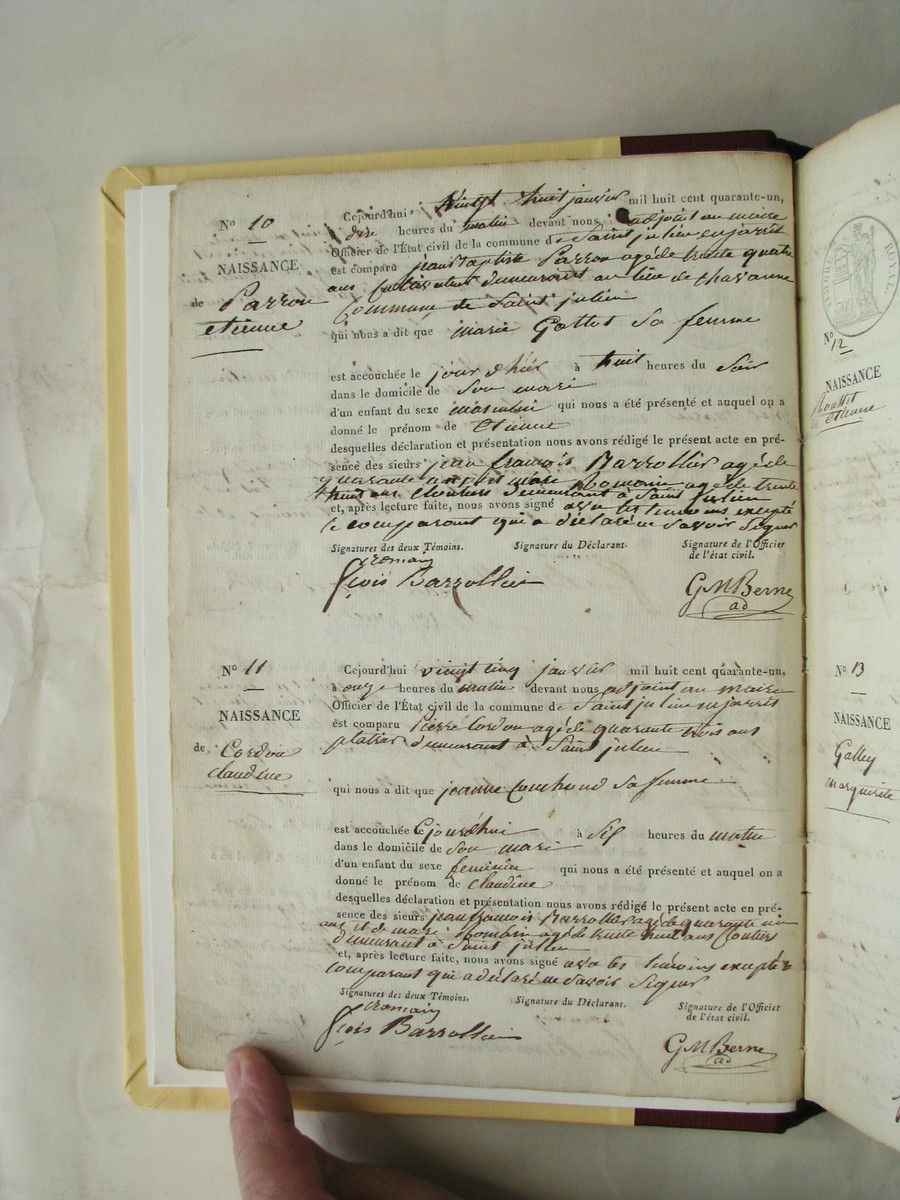 N° 10
NAISSANCE
de Parron
etienne
Cejourd'hui Vingt huit janvier mil huit cent quarante-un,
dix heures du matin devant nous adjoint au maire
Officier de l'État civil de la commune de Saint julien en jarret
est comparu jean Baptiste Parron agé de trente quatre
ans cultivateur demeurant au lieu de Chavanne
Commune de Saint julien
qui nous a dit que marie Gattet Sa femme
est accouchée le jour d'hier à huit heures du Soir
dans le domicile de Son mari
d'un enfant du sexe masculin qui nous a été présenté et auquel on a
donné le prénom de etienne
desquelles déclaration et présentation nous avons rédigé le présent acte en pré-
sence des sieurs jean françois Barrollier agé de
quarante un ans et marc Romain agé de trente
huit ans cloutiers demeurant à Saint julien
et, après lecture faite, nous avons signé avec les temoins excepté
le comparant qui a déclaré ne Savoir Signer
Signatures des deux Témoins. Signature du Déclarant. Signature de l'Officier
de l'état civil.
Romain
fçois Barrollier
G M Berne
ad
N° 11
NAISSANCE
de Cordon
claudine
Cejourd'hui vingt cinq janvier mil huit cent quarante-un,
à onze heures du matin devant nous adjoint au maire
Officier de l'État civil de la commune de Saint julien en jarret
est comparu Pierre Cordon agé de quarante trois ans
platrier demeurant à Saint julien
qui nous a dit que jeanne Couchoud Sa femme
est accouchée cejourdhui à Six heures du matin
dans le domicile de Son mari
d'un enfant du sexe feminin qui nous a été présenté et auquel on a
donné le prénom de claudine
desquelles déclaration et présentation nous avons rédigé le présent acte en pré-
sence des sieurs jean francois Barrollier agé de quarante un
ans et de marc Romain agé de trente huit ans Cloutiers
demeurant à Saint julien
et, après lecture faite, nous avons signé avec les temoins excepté le
comparant qui a déclaré ne Savoir Signer
Signatures des deux Témoins. Signature du Déclarant. Signature de l'Officier
de l'état civil.
Romain
fçois Barrollier
G M Berne
ad
ROYAL
N° 12
NAISSANCE
Rousset
etienne
N° 13
NAISSANCE
Galley
marguerite